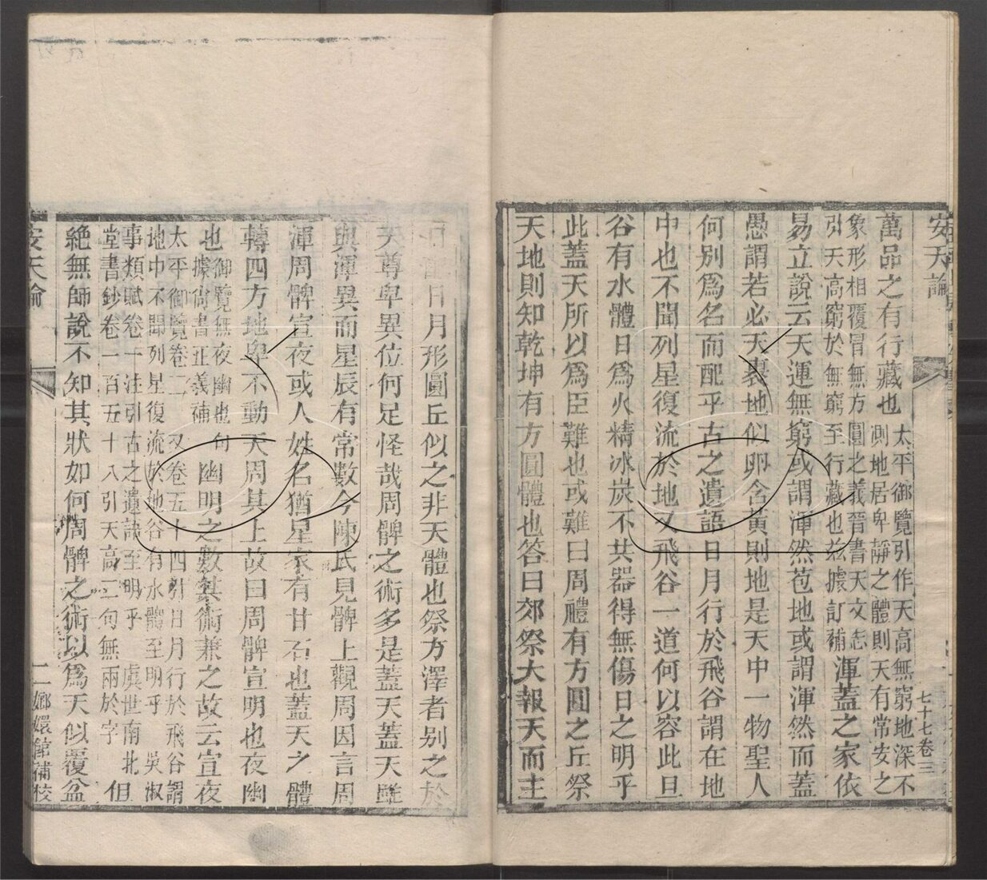 安天論
七十七卷三
萬品之有行藏也太平御覽引作天高無窮地深不測地居卑靜之體則天有常安之
象形相覆冒無方圓之義晉書天文志引天高窮於無窮至行藏也茲據訂補渾蓋之家依
易立說云天運無窮或謂渾然苞地或謂渾然而蓋
愚謂若必天裹地似卵含黃則地是天中一物聖人
何別爲名而配乎古之遺語日月行於飛谷謂在地
中也不聞列星復流於地又飛谷一道何以容此且
谷有水體日爲火精冰炭不共器得無傷日之明乎
此蓋天所以爲臣難也或難曰周禮有方圓之丘祭
天地則知乾坤有方圓體也答曰郊祭大報天而主
日月形圓丘似之非天體也祭方澤者別之於
天尊卑異位何足怪哉周髀之術多是蓋天蓋天雖
與渾異而星辰有常數今陳氏見髀上觀周因言周
渾周髀宣夜或人姓名猶星家有甘石也蓋天之體
轉四方地卑不動天周其上故曰周髀宣明也夜幽
也御覽無夜幽也句據尚書正義補幽明之數其術兼之故云宣夜
太平御覽卷二又卷五十四引日月行於飛谷謂
地中不聞列星復流於地谷有水體至明乎 吳淑
事類賦卷一注引古之遺語至明乎 虞世南北
堂書鈔卷一百五十八引天高二句無兩於字 但
絕無師說不知其狀如何周髀之術以爲天似覆盆
安天論
二
嫏嬛館補校